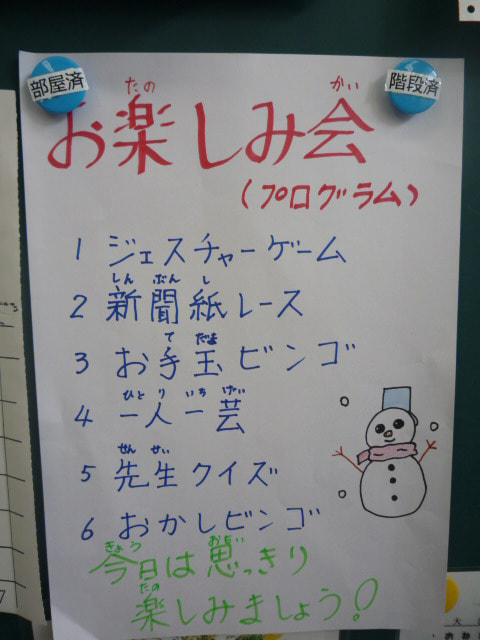 部屋済
階段済
たの かい
お楽しみ会
(プログラム)
1 ジェスチャーゲーム
しん ぶん し
2 新聞紙レース
て だま
3 お手玉ビンゴ
ひとり いち げい
4 一人一芸
せん せい
5 先生クイズ
6 おかしビンゴ
きょう おもい
今日は思っきり
たの
楽しみましょう!